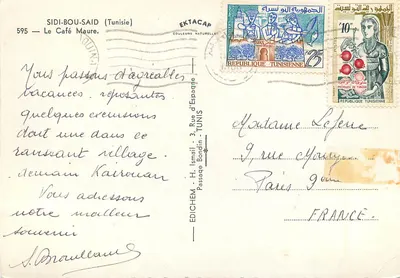 SIDI-BOU-SAID (Tunisie)
595 - Le Café Maure.
EKTACAP
COULEURS NATURELLES
Vous passons d'agréables
vacances reposantes
quelques excursions
dont une dans ce
ravissant village.
demain Kairouan
Vous adressons
notre meilleur
souvenir
EDICHEM - H. Ismaïl - 3, Rue d'Espagne
Passage Bondin - TUNIS
REPUBLIQUE TUNISIENNE
25
10
REPUBLIQUE TUNISIENNE
Madame
9, rue
Paris 9ème
FRANCE.